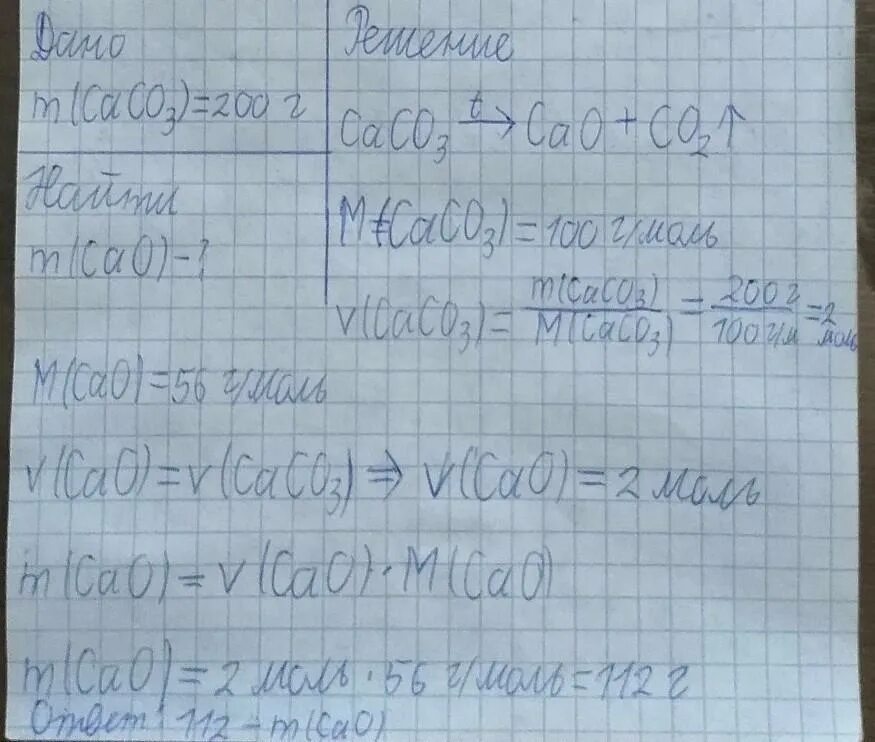 Дано
m(CaCO₃)=200 г
Найти
m(CaO)-?
Решение
CaCO₃ t→ CaO + CO₂↑
M(CaCO₃)=100 г/моль
ν(CaCO₃)= m(CaCO₃)/M(CaCO₃) = 200 г/100 г/м =2 моль
M(CaO)=56 г/моль
ν(CaO)=ν(CaCO₃)⇒ ν(CaO)=2 моль
m(CaO)=ν(CaO)·M(CaO)
m(CaO)=2 моль·56 г/моль=112 г
Ответ: 112 - m(CaO)